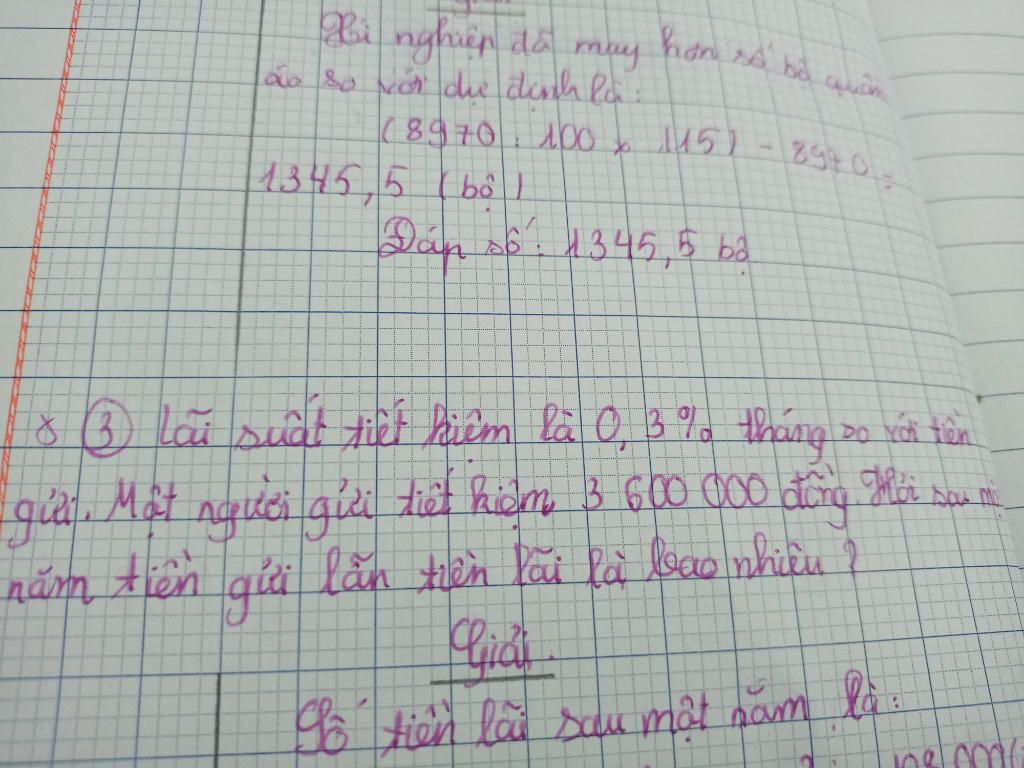 Xí nghiệp đã may hơn số bộ quần
áo so với dự định là:
(8970 : 100 x 115) - 8970 =
1345,5 (bộ)
Đáp số: 1345,5 bộ
③ Lãi suất tiết kiệm là 0,3% tháng so với tiền
gửi. Một người gửi tiết kiệm 3 600 000 đồng Hỏi sau một
năm tiền gửi lẫn tiền lãi là bao nhiêu?
Giải.
Số tiền lãi sau một năm là: